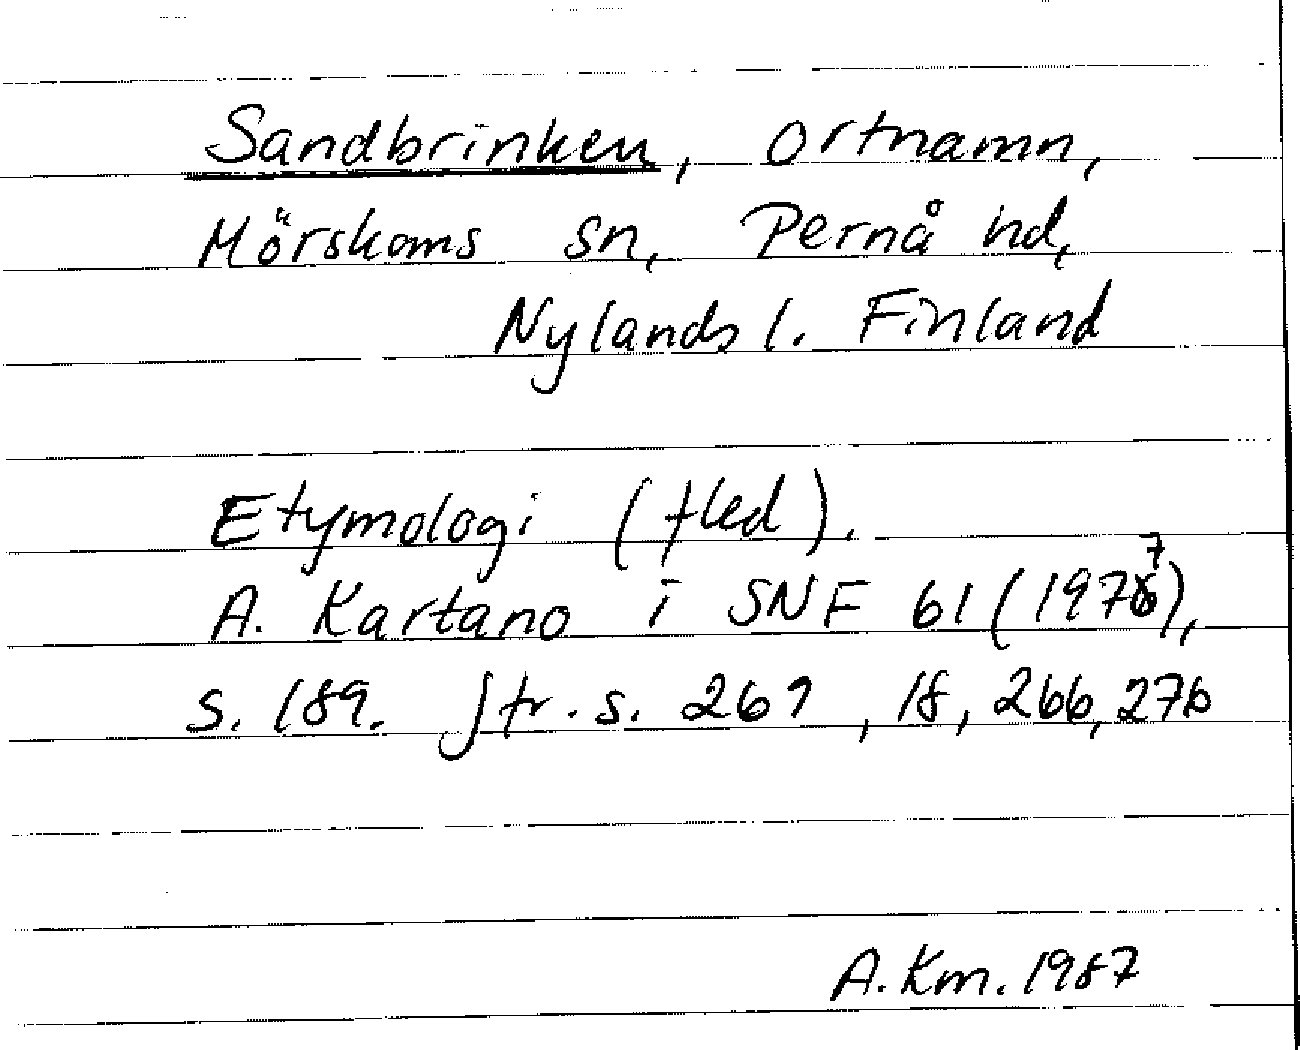 Sandbrinken, ortnamn,
Mörskoms sn, Pernå hd,
Nylands l. Finland
Etymologi (fled).
A. Kartano i SNF 61 (1977),
s. 189. Jfr. s. 269, 18, 266, 276
A. Km. 1987